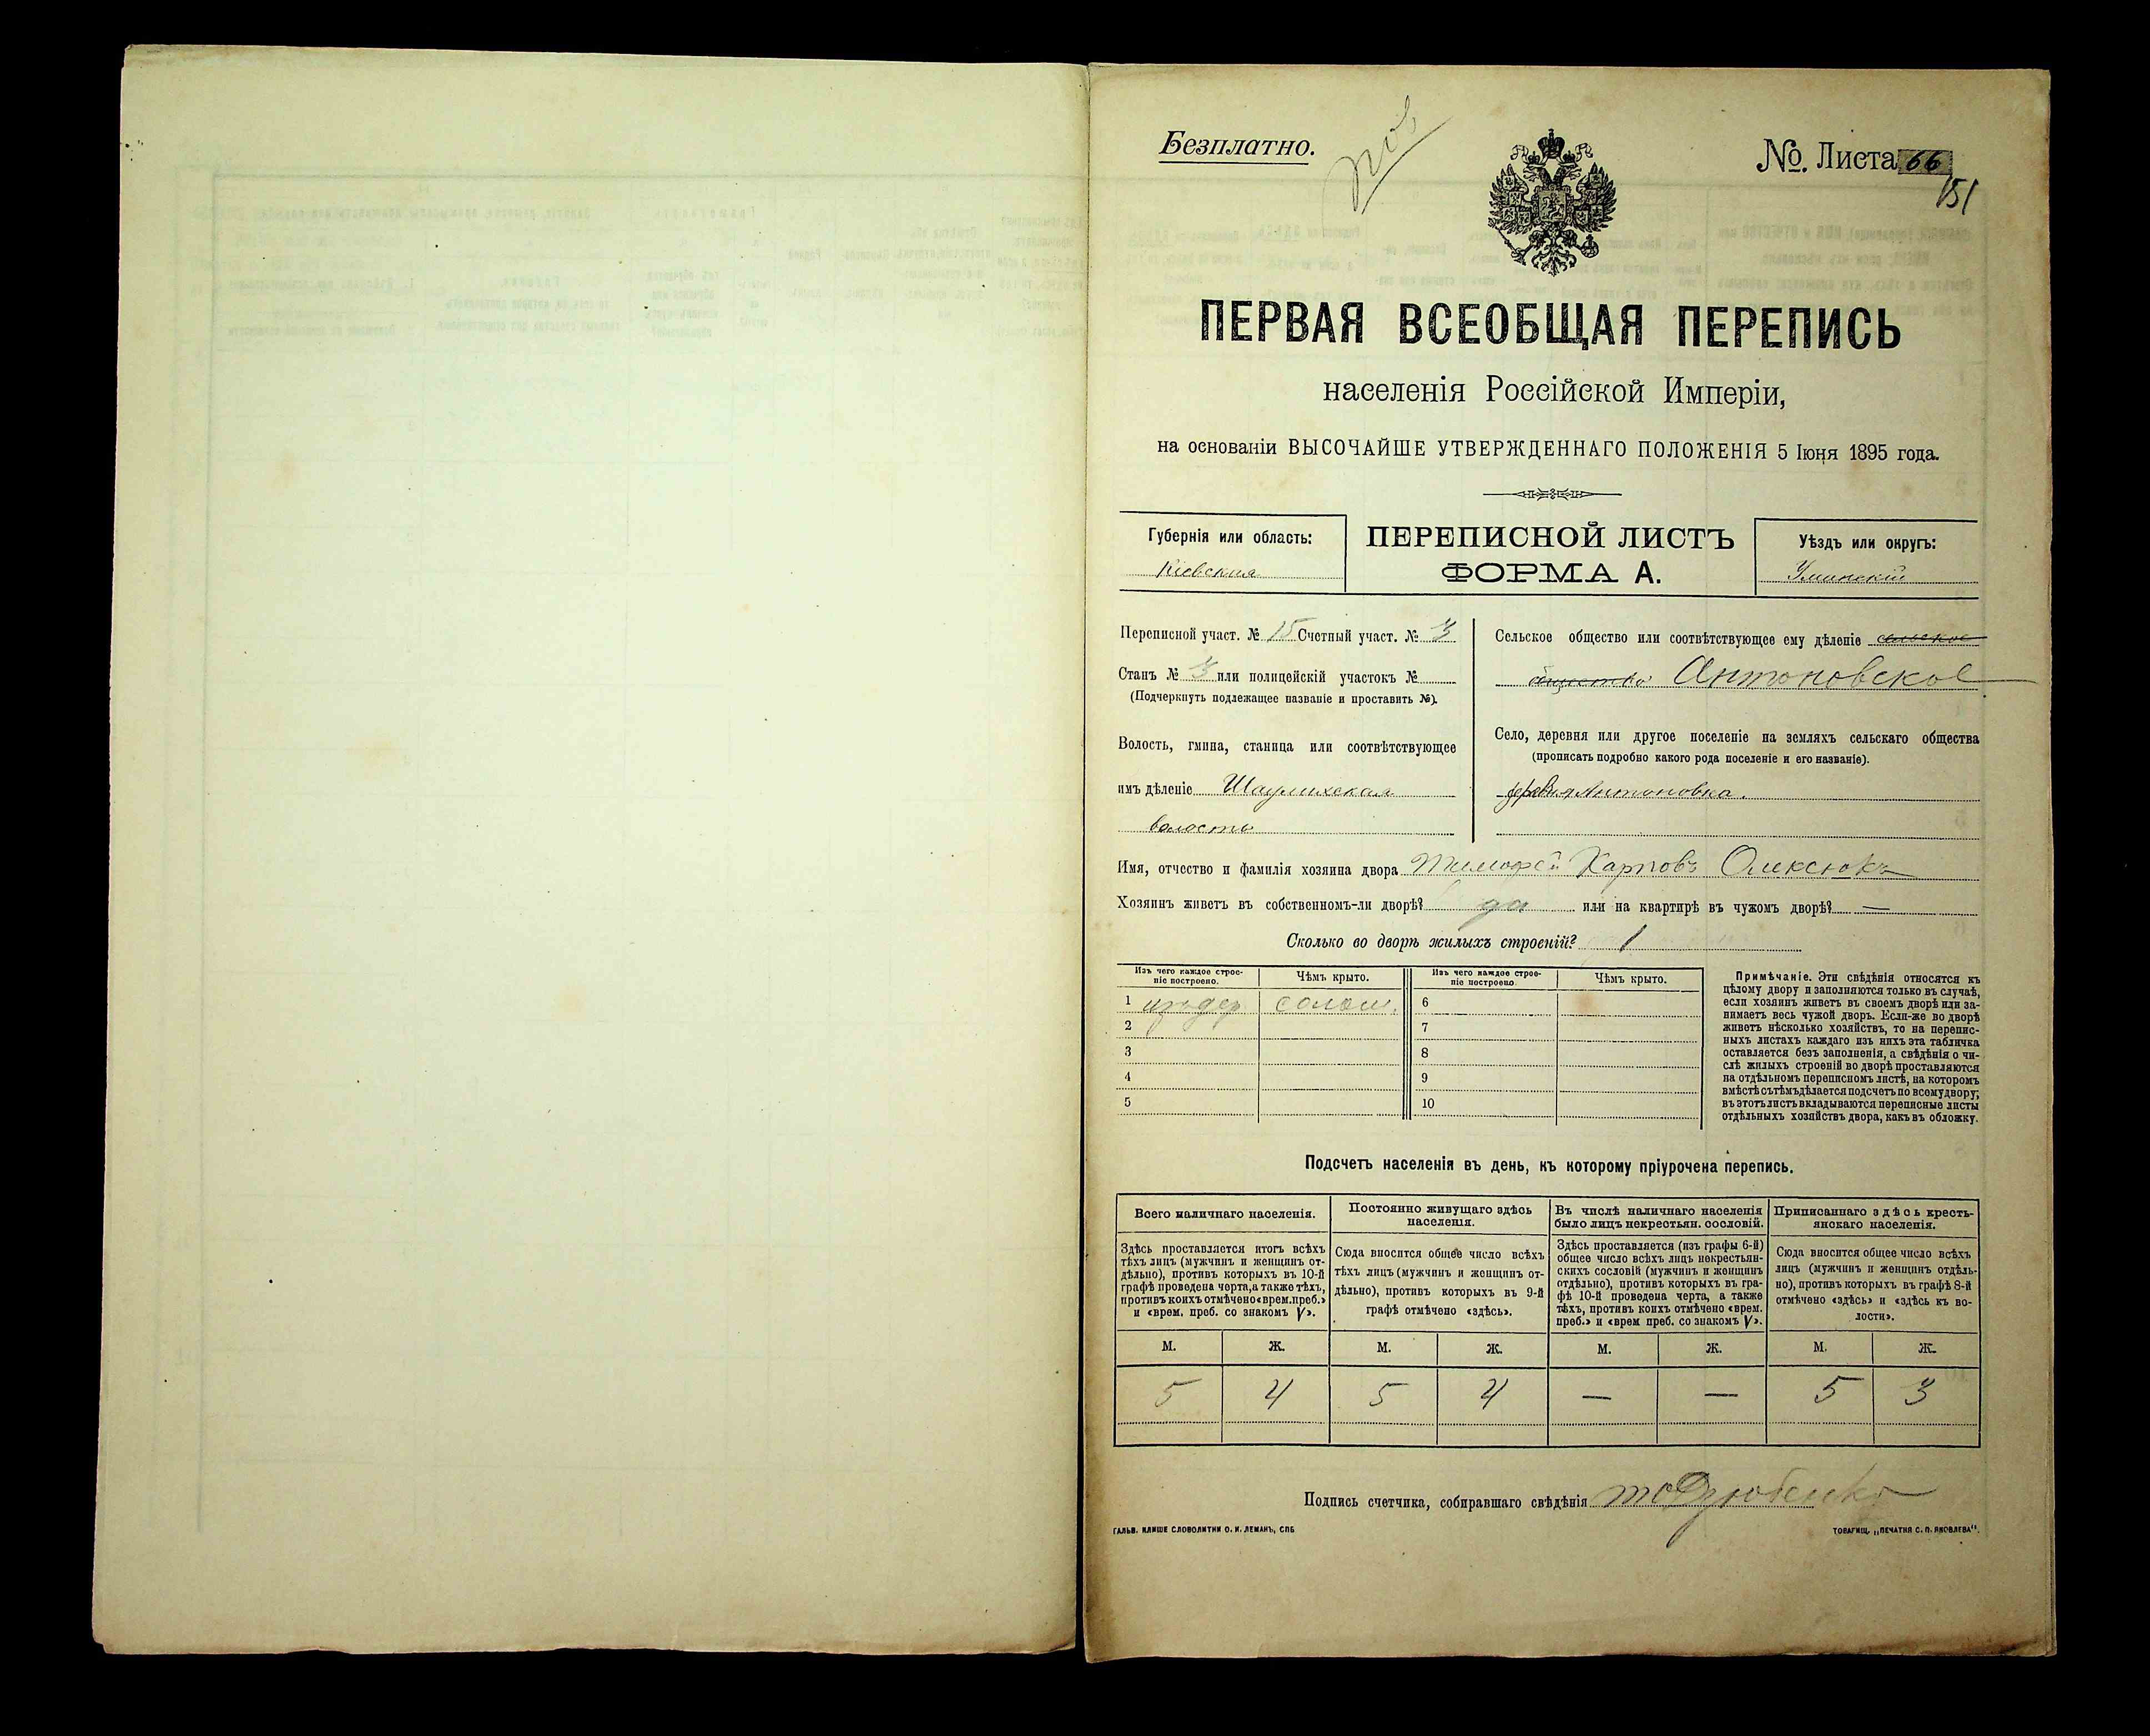 Безплатно.
№. Листа 66
151
ПЕРВАЯ ВСЕОБЩАЯ ПЕРЕПИСЬ
населенія Россійской Имперіи,
на основаніи ВЫСОЧАЙШЕ УТВЕРЖДЕННАГО ПОЛОЖЕНІЯ 5 Іюня 1895 года.
Губернія или область:
Кіевская
ПЕРЕПИСНОЙ ЛИСТЪ
ФОРМА А.
Уѣздъ или округъ:
Уманскій
Переписной участ. № 15 Счетный участ. № 3
Станъ № 3 или полицейскій участокъ №
(Подчеркнуть подлежащее названіе и проставить №).
Волость, гмина, станица или соотвѣтствующее
имъ дѣленіе Шаулихская
волость
Сельское общество или соотвѣтствующее ему дѣленіе сельское
общество Антоновское
Село, деревня или другое поселеніе на земляхъ сельскаго общества
(прописать подробно какого рода поселеніе и его названіе).
деревня Антоновка.
Имя, отчество и фамилія хозяина двора Тимофей Карповъ Олексюкъ
Хозяинъ живетъ въ собственномъ-ли дворѣ? да или на квартирѣ въ чужомъ дворѣ? —
Сколько во дворѣ жилыхъ строеній? 1
Изъ чего каждое строе-
ніе построено.
Чѣмъ крыто.
Изъ чего каждое строе-
ніе построено
Чѣмъ крыто.
1 изъ дер солом. 6
2 7
3 8
4 9
5 10
Примѣчаніе. Эти свѣдѣнія относятся къ
цѣлому двору и заполняются только въ случаѣ,
если хозяинъ живетъ въ своемъ дворѣ или за-
нимаетъ весь чужой дворъ. Если-же во дворѣ
живетъ нѣсколько хозяйствъ, то на перепис-
ныхъ листахъ каждаго изъ нихъ эта табличка
оставляется безъ заполненія, а свѣдѣнія о чи-
слѣ жилыхъ строеній во дворѣ проставляются
на отдѣльномъ переписномъ листѣ, на которомъ
вмѣстѣ съ тѣмъ дѣлается подсчетъ по всему двору;
въ этотъ листъ вкладываются переписные листы
отдѣльныхъ хозяйствъ двора, какъ въ обложку.
Подсчетъ населенія въ день, къ которому пріурочена перепись.
Всего наличнаго населенія.
Здѣсь проставляется итогъ всѣхъ
тѣхъ лицъ (мужчинъ и женщинъ от-
дѣльно), противъ которыхъ въ 10-й
графѣ проведена черта, а также тѣхъ,
противъ коихъ отмѣчено «врем. преб.»
и «врем. преб. со знакомъ V».
Постоянно живущаго здѣсь
населенія.
Сюда вносится общее число всѣхъ
тѣхъ лицъ (мужчинъ и женщинъ от-
дѣльно), противъ которыхъ въ 9-й
графѣ отмѣчено «здѣсь».
Въ числѣ наличнаго населенія
было лицъ некрестьян. сословій.
Здѣсь проставляется (изъ графы 6-й)
общее число всѣхъ лицъ некрестьян-
скихъ сословій (мужчинъ и женщинъ
отдѣльно), противъ которыхъ въ гра-
фѣ 10-й проведена черта, а также
тѣхъ, противъ коихъ отмѣчено «врем.
преб.» и «врем преб. со знакомъ V».
Приписаннаго здѣсь кресть-
янскаго населенія.
Сюда вносится общее число всѣхъ
лицъ (мужчинъ и женщинъ отдѣль-
но), противъ которыхъ въ графѣ 8-й
отмѣчено «здѣсь» и «здѣсь къ во-
лости».
М. Ж. М. Ж. М. Ж. М. Ж.
5 4 5 4 — — 5 3
Подпись счетчика, собиравшаго свѣдѣнія
ГАЛЬВ. КЛИШЕ СЛОВОЛИТНИ О. И. ЛЕМАНЪ, СПБ
ТОВАРИЩ. „ПЕЧАТНЯ С. П. ЯКОВЛЕВА".